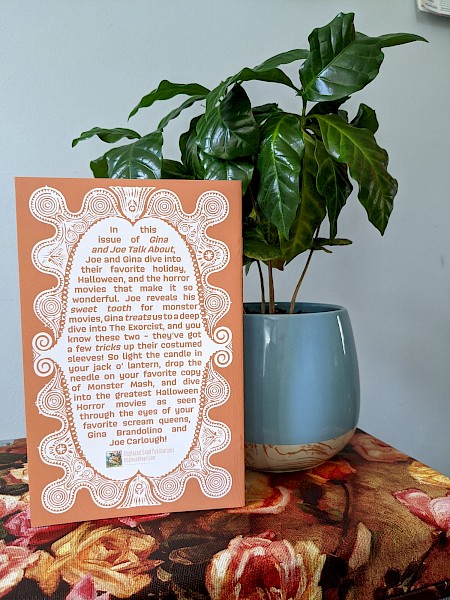 In this
issue of Gina
and Joe Talk About,
Joe and Gina dive into
their favorite holiday,
Halloween, and the horror
movies that make it so
wonderful. Joe reveals his
sweet tooth for monster
movies, Gina treats us to a deep
dive into The Exorcist, and you
know these two - they've got
a few tricks up their costume
sleeves! So light the candle in
your jack o' lantern, drop the
needle on your favorite copy
of Monster Mash, and dive
into the greatest Halloween
Horror movies as seen
through the eyes of your
favorite scream queens,
Gina Brandolino and
Joe Carlough!